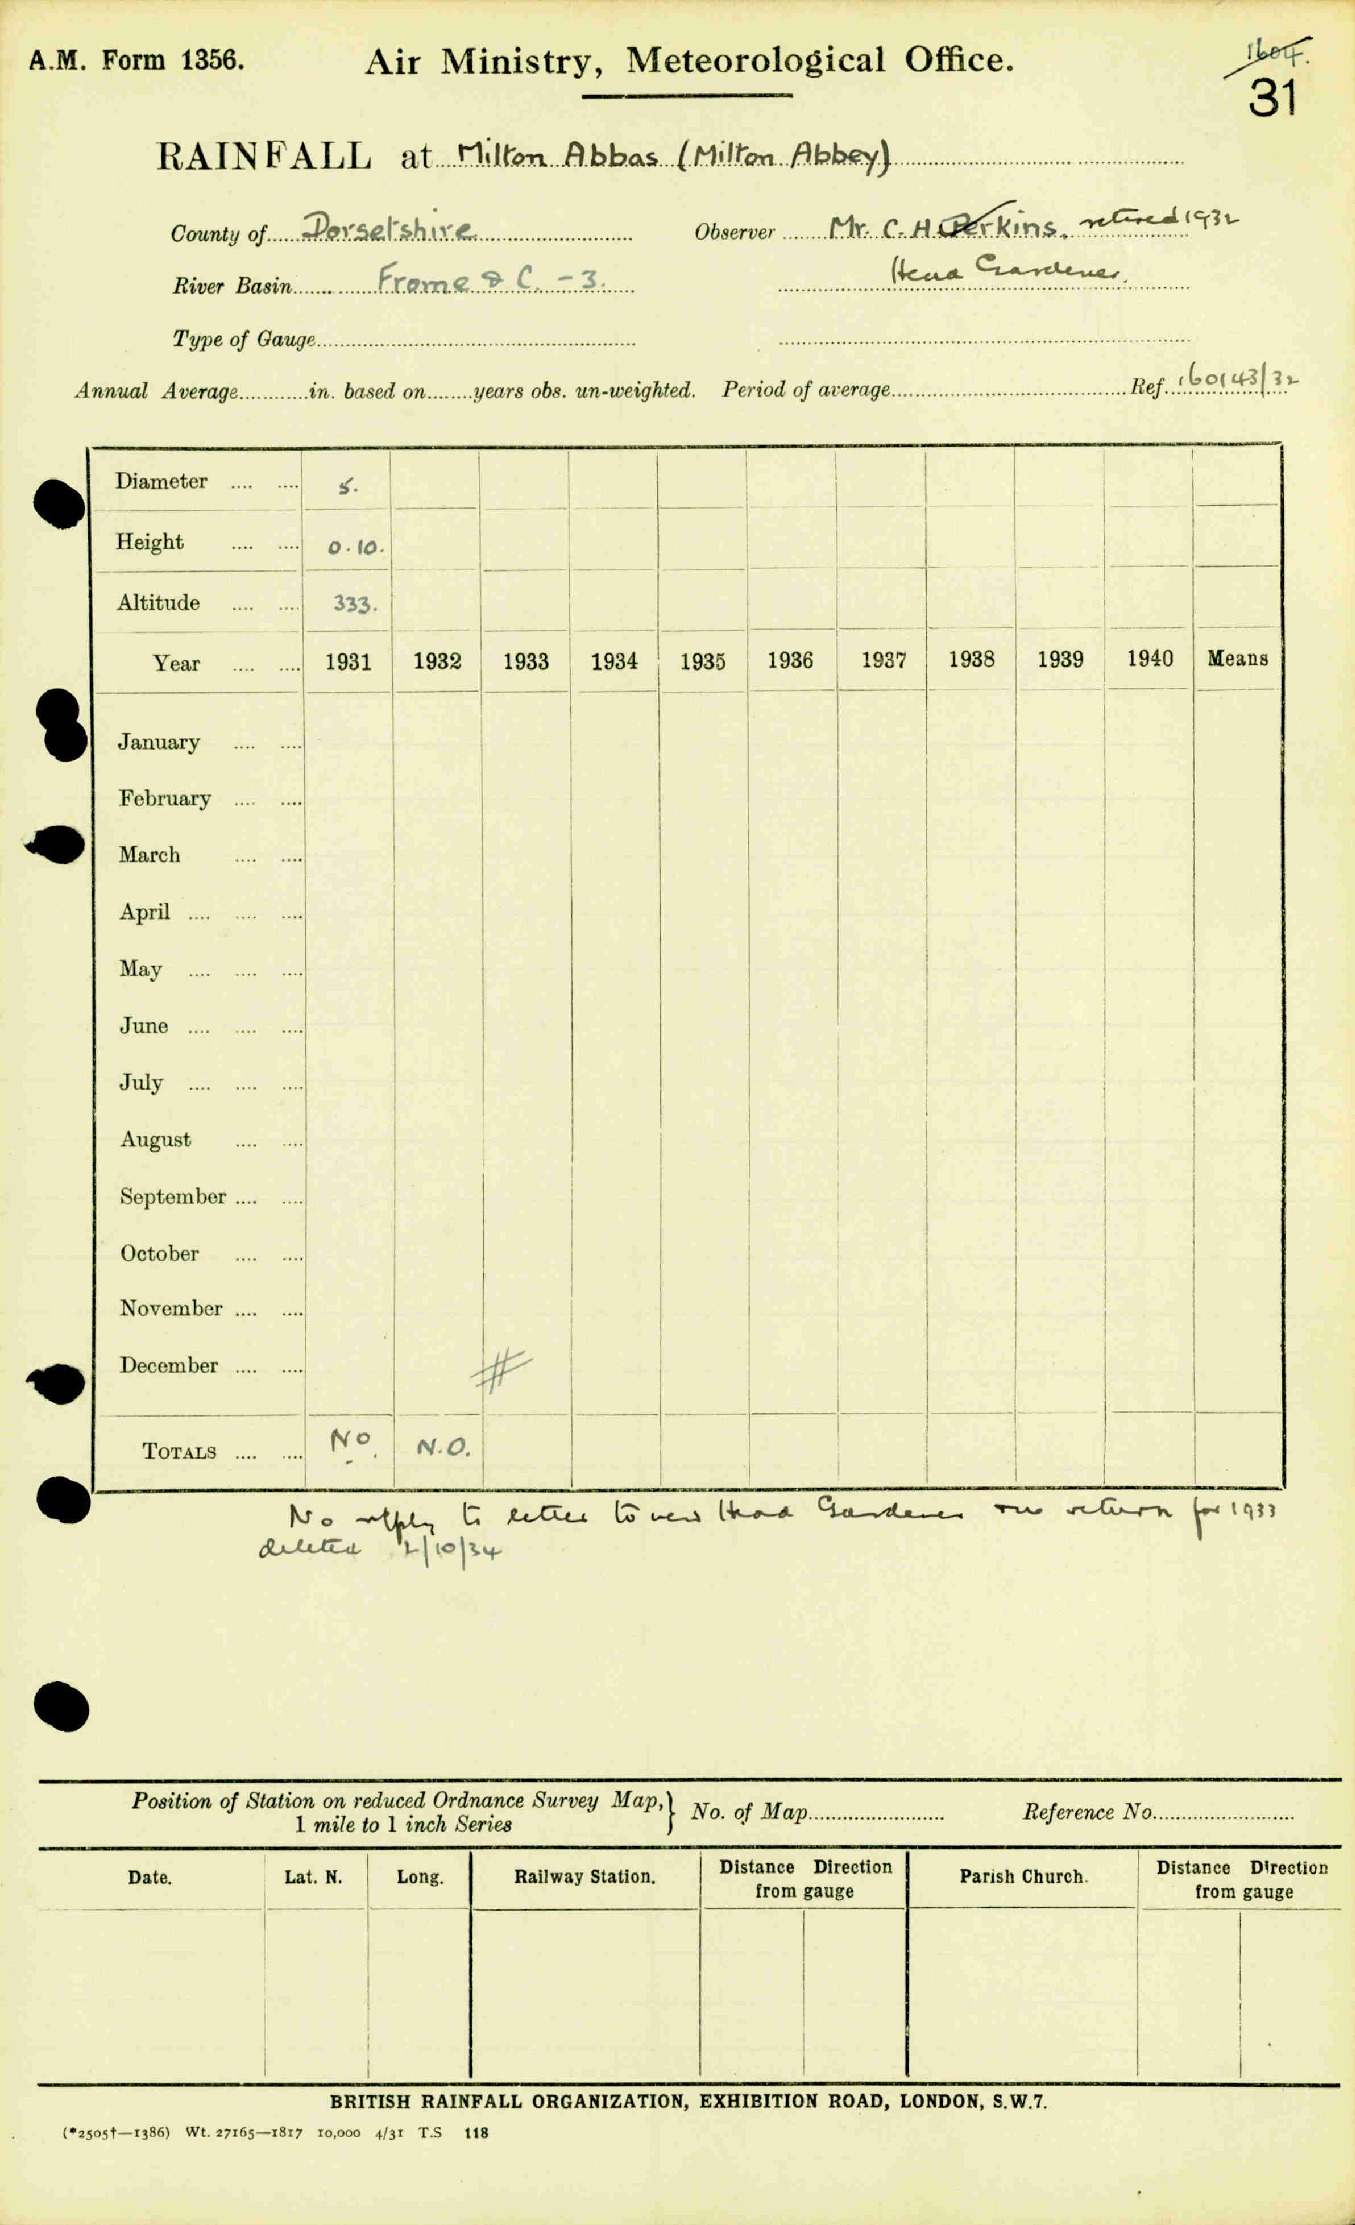 A.M. Form 1356.
Air Ministry, Meteorological Office.
1604.
31
RAINFALL at Milton Abbas (Milton Abbey)
County of Dorsetshire Observer Mr. C. H. Perkins. retired 1932
River Basin Frome & C. - 3. Head Gardener.
Type of Gauge
Annual Average in. based on years obs. un-weighted. Period of average Ref. 160143/32
Diameter 5.
Height 0.10.
Altitude 333.
Year 1931 1932 1933 1934 1935 1936 1937 1938 1939 1940 Means
January
February
March
April
May
June
July
August
September
October
November
December #
TOTALS No. N.O.
No reply to letter to new Head Gardener no return for 1933
deleted 2/10/34
Position of Station on reduced Ordnance Survey Map,} No. of Map Reference No.
1 mile to 1 inch Series
Date. Lat. N. Long. Railway Station. Distance Direction from gauge Parish Church. Distance Direction from gauge
BRITISH RAINFALL ORGANIZATION, EXHIBITION ROAD, LONDON, S.W.7.
(*2505†—1386) Wt. 27165—1817 10,000 4/31 T.S 118